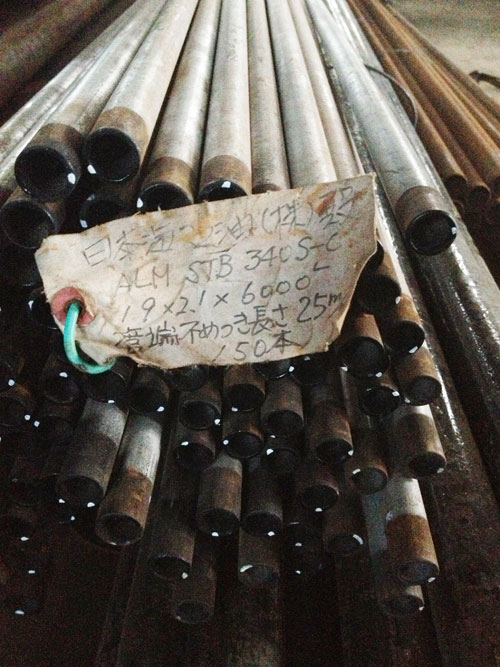 日本 (株)
ALM STB 340S-C
19×2.1×6000L
管端不めっき長さ25m
150本